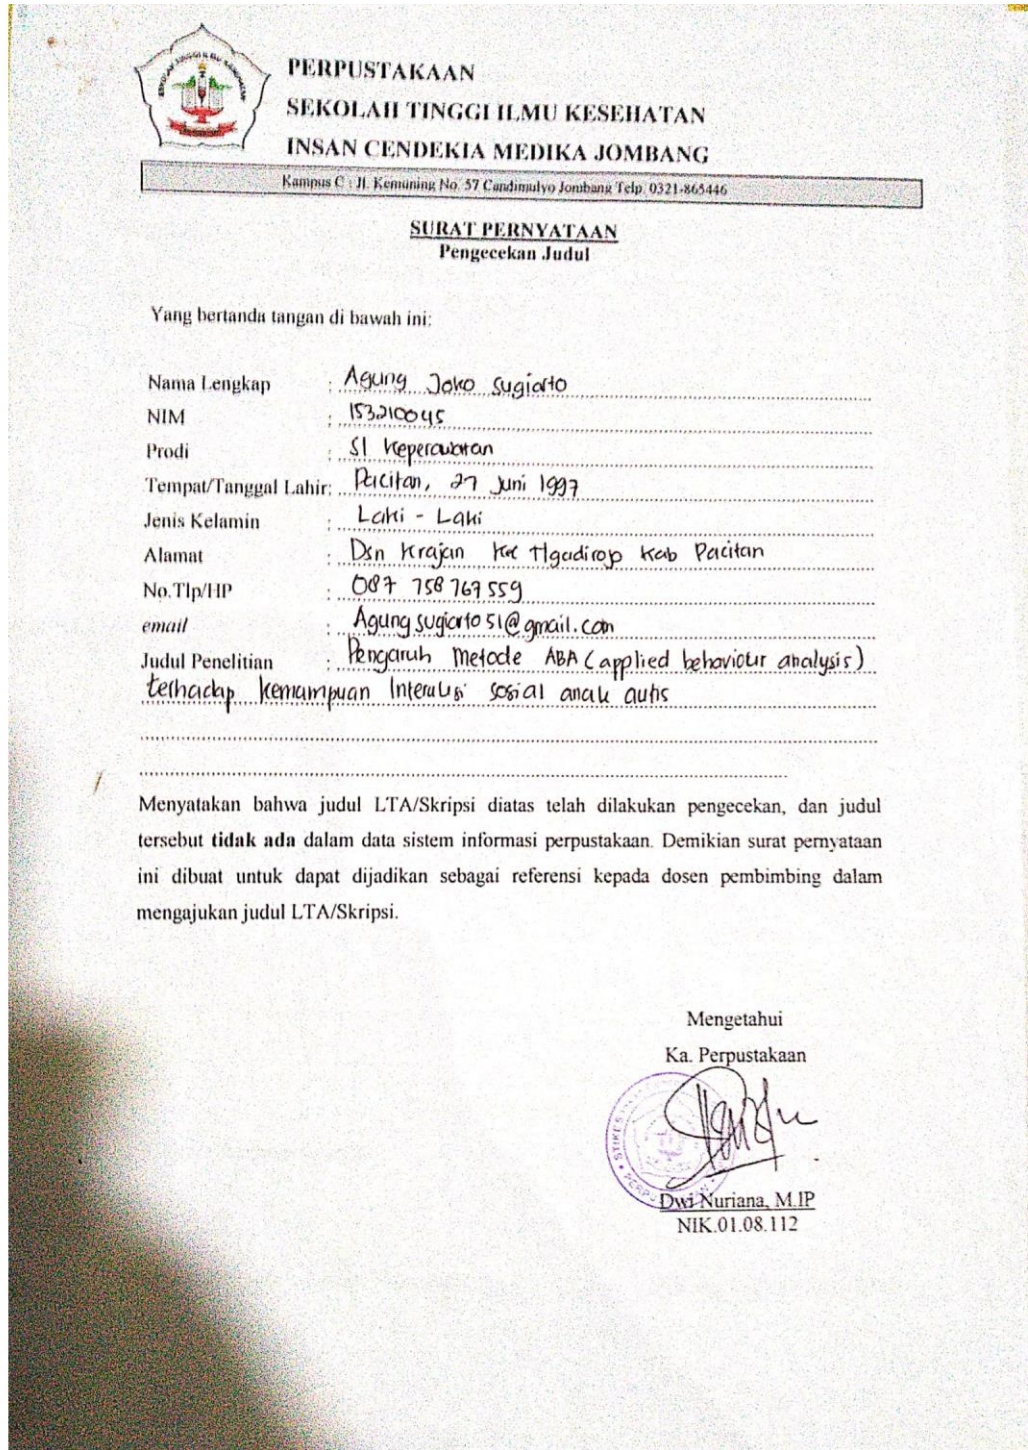 PERPUSTAKAAN
SEKOLAH TINGGI ILMU KESEHATAN
INSAN CENDEKIA MEDIKA JOMBANG
Kampus C : Jl. Kemuning No. 57 Candimulyo Jombang Telp. 0321-865446
SURAT PERNYATAAN
Pengecekan Judul
Yang bertanda tangan di bawah ini:
Nama Lengkap : Agung Joko Sugiarto
NIM : 153210045
Prodi : S1 Keperawatan
Tempat/Tanggal Lahir: Pacitan, 27 Juni 1997
Jenis Kelamin : Laki - Laki
Alamat : Dsn Krajan Kec Ngadirojo Kab Pacitan
No.Tlp/HP : 087 758 767 559
email : Agungsugiarto51@gmail.com
Judul Penelitian : Pengaruh Metode ABA (applied behaviour analysis)
terhadap kemampuan Interaksi sosial anak autis
Menyatakan bahwa judul LTA/Skripsi diatas telah dilakukan pengecekan, dan judul
tersebut tidak ada dalam data sistem informasi perpustakaan. Demikian surat pernyataan
ini dibuat untuk dapat dijadikan sebagai referensi kepada dosen pembimbing dalam
mengajukan judul LTA/Skripsi.
Mengetahui
Ka. Perpustakaan
Dwi Nuriana, M.IP
NIK.01.08.112